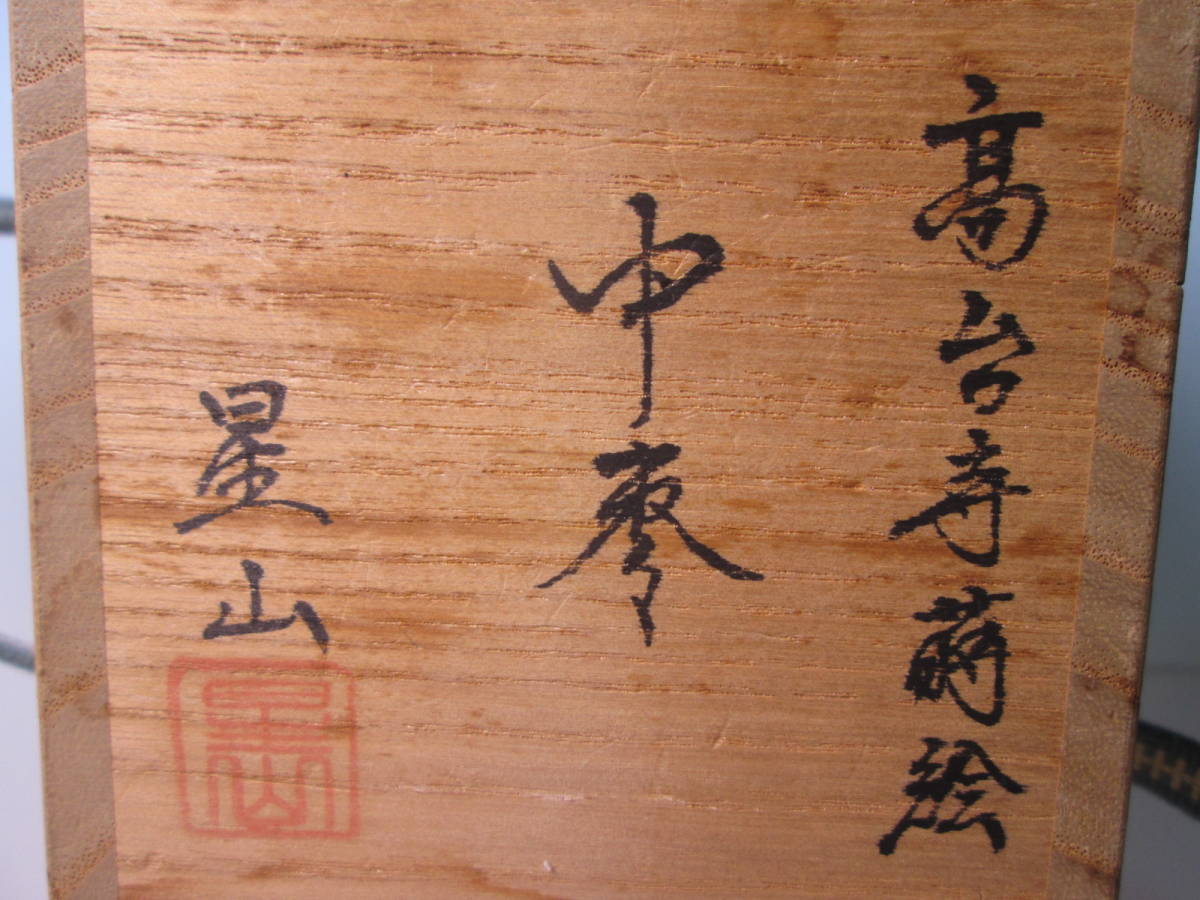 高台寺蒔絵
中棗
星山
星山